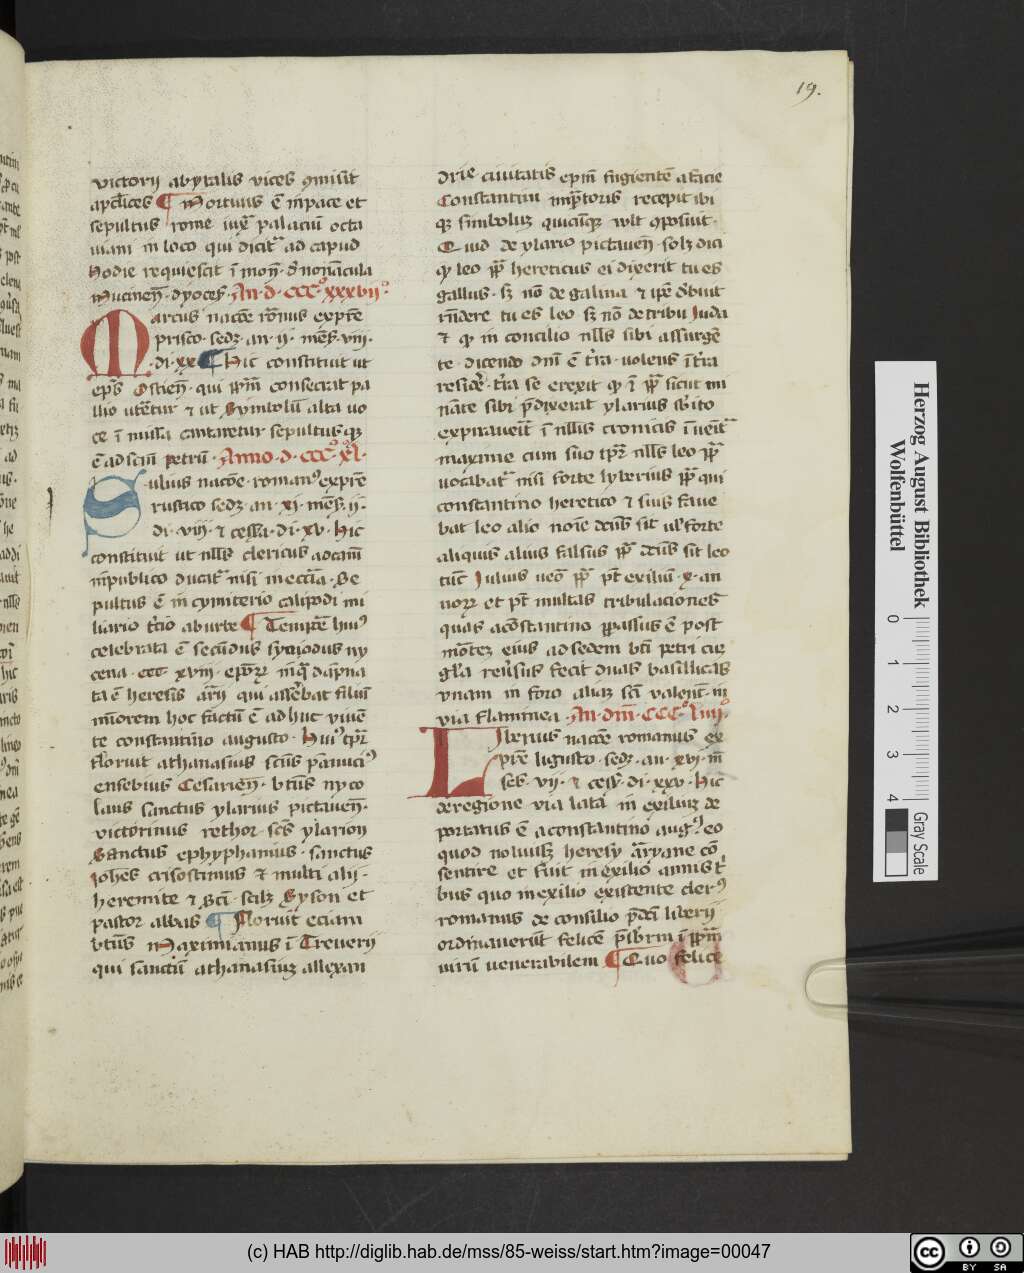 19.
victorij abytalis vices ɔmisit
aplices ¶ Mortuus ē in pace et
sepultus rome iuxͣ palaciū octa
uiani in loco qui dicitͬ ad capud
hodie requiescit ī mon̄
An · d · ccc° xxxvij°
Marcus nacōe rōnus ex pr̄e
prisco · sedꝫ · an · ij · mēs · viij ·
· di · xx ¶ Hic constituit ut
ep̄s Ostien̄ · qui consecrat pa
llio utētur ⁊ ut symbolū alta uo
ce ī missa cantaretur sepultusqꝫ
ē ad scm̄ petrū · Anno · d · ccc° xl ·
Iulius nacōe · romanꝰ ex pr̄e
rustico sedꝫ · an · xi · mēs · ij ·
di · viij · ⁊ cessa · di · xv · hic
constituit ut nlls clericus
in publico ducatͬ nisi in ecc̄ia · Se
pultus ē in cymiterio calipodi mi
liario t̄cio ab urbe ¶ Tempr̄e huiꝰ
celebrata ē secūdus synodus ny
cena · ccc xviij · in qͣ dāpna
ta ē heresis arij qui assēbat filiū
miorem hoc factū ē adhuc viuē
te constantino augusto · Huiꝰ tp̄r
floruit athanasius scūs
eusebius Cesarien̄ · btūs nyco
laus sanctus ylarius pictauen̄ ·
victorinus rethor · scs ylarion
Sanctus ephyphanius · sanctus
Iohes crisostimus ⁊ multi alij ·
heremite ⁊ sci · scilꝫ Syson et
pastor abbas ¶ Floruit eciam
btūs Maximianus ī Treuerij
qui sanctū athanasiuꝫ allexan
drie ciuitatis ep̄m fugientē a facie
Constantini recepit ibi
qꝫ simboluꝫ quicūqꝫ wlt ɔposuit ·
Quid de ylario pictauen̄ · solꝫ dici
qꝫ leo pp̄ hereticus ei dixerit tu es
gallus · sꝫ nō de galina ⁊ ipe
rn̄dere tu es leo sꝫ nō de tribu Iuda
⁊ qꝫ in concilio nlls sibi assurgē
te · dicendo dm̄ ē t̄ra · uolens ī t̄ra
t̄ra se erexit qꝫ ī pp̄ sicut mi
nāte sibi p̄dixerat ylarius sbito
expirauerit ī nllis cronicis īueitͬ
maxime cum suo tp̄r nlls leo pp̄
uocabatͬ nisi forte lyberius pp̄ qui
constantino heretico ⁊ suis faue
bat leo alio noīe dcūs sit ul' forte
aliquis alius falsus pp̄ dcūs sit leo
tūc Iulius uēo pp̄ pt̄ exiliū · x · an
noꝝ et pt̄ multas tribulaciones
quas a cōstantino ppassus ē post
mortē eius ad sedem bti petri cū
gl̄a reuersus fecit duas basillicas
vnam in foro aliaꝫ sci valent̄ · in
via flaminea · An · dn̄i · ccc° liiij°
Liberius nacōe romanus ex
pr̄e ligusto · sedꝫ · an · xvj · m̄
ses · vij · ⁊ cess · di · xxv · Hic
de regione via lata in exiliuꝫ de
portatus ē a constantino augꝰ eo
quod noluisꝫ heresy arryane cō
sentire et fuit in exilio annis t'
bus quo in exilio existente clerꝰ
romanus de consilio liberij
ordinauerūt felicē p̄sbrm ī ppam
uirū uenerabilem ¶ Quo felice
Herzog August Bibliothek
Wolfenbüttel
0 1 2 3 4
Gray Scale
(c) HAB http://diglib.hab.de/mss/85-weiss/start.htm?image=00047
cc BY SA